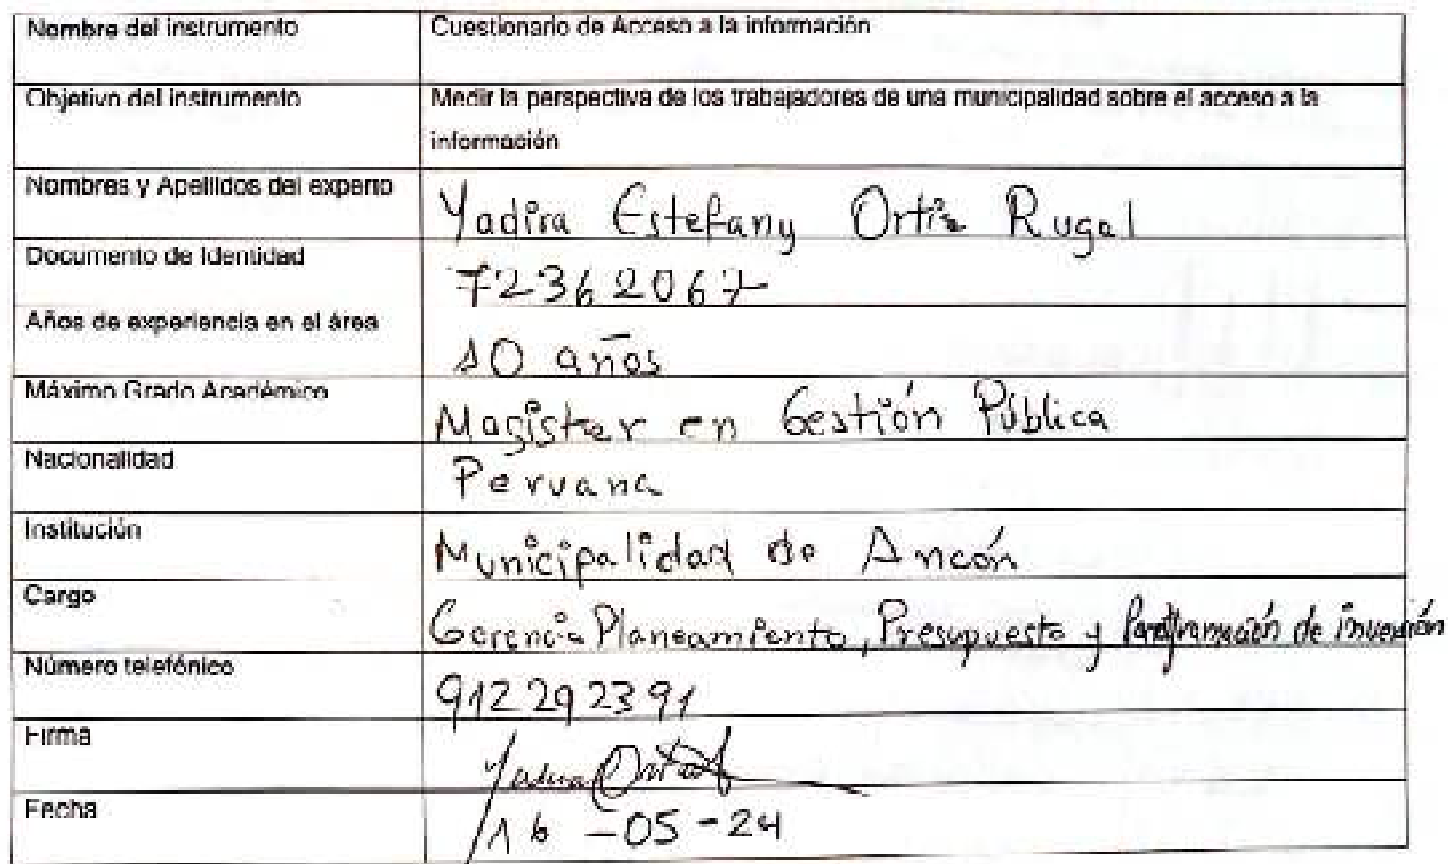 Nombre del instrumento Cuestionario de Acceso a la información
Objetivo del instrumento Medir la perspectiva de los trabajadores de una municipalidad sobre el acceso a la
información
Nombres y Apellidos del experto Yadira Estefany Ortiz Rugel
Documento de Identidad 72362067
Años de experiencia en el área 10 años
Máximo Grado Académico Magister en Gestión Pública
Nacionalidad Peruana
Institución Municipalidad de Ancón
Cargo Gerencia Planeamiento, Presupuesto y Programación de inversión
Número telefónico 912292391
Firma
Fecha 16-05-24